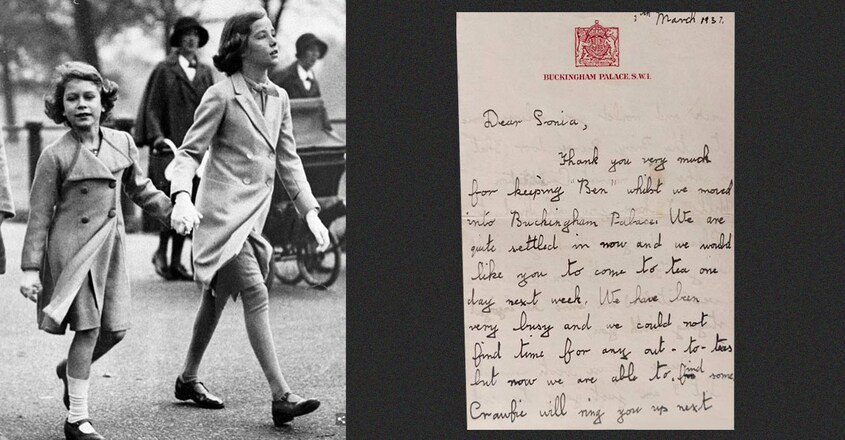 March 1937.
BUCKINGHAM PALACE. S.W.1.
Dear Sonia,
Thank you very much
for keeping "Ben" whilst we moved
into Buckingham Palace. We are
quite settled in now and we would
like you to come to tea one
day next week. We have been
very busy and we could not
find time for any out-to-teas
but now we are able to. find some
Crawfie will ring you up next